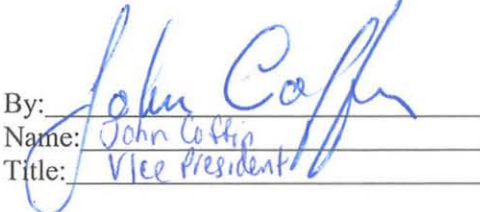 By: John Coffin
Name: John Coffin
Title: Vice President